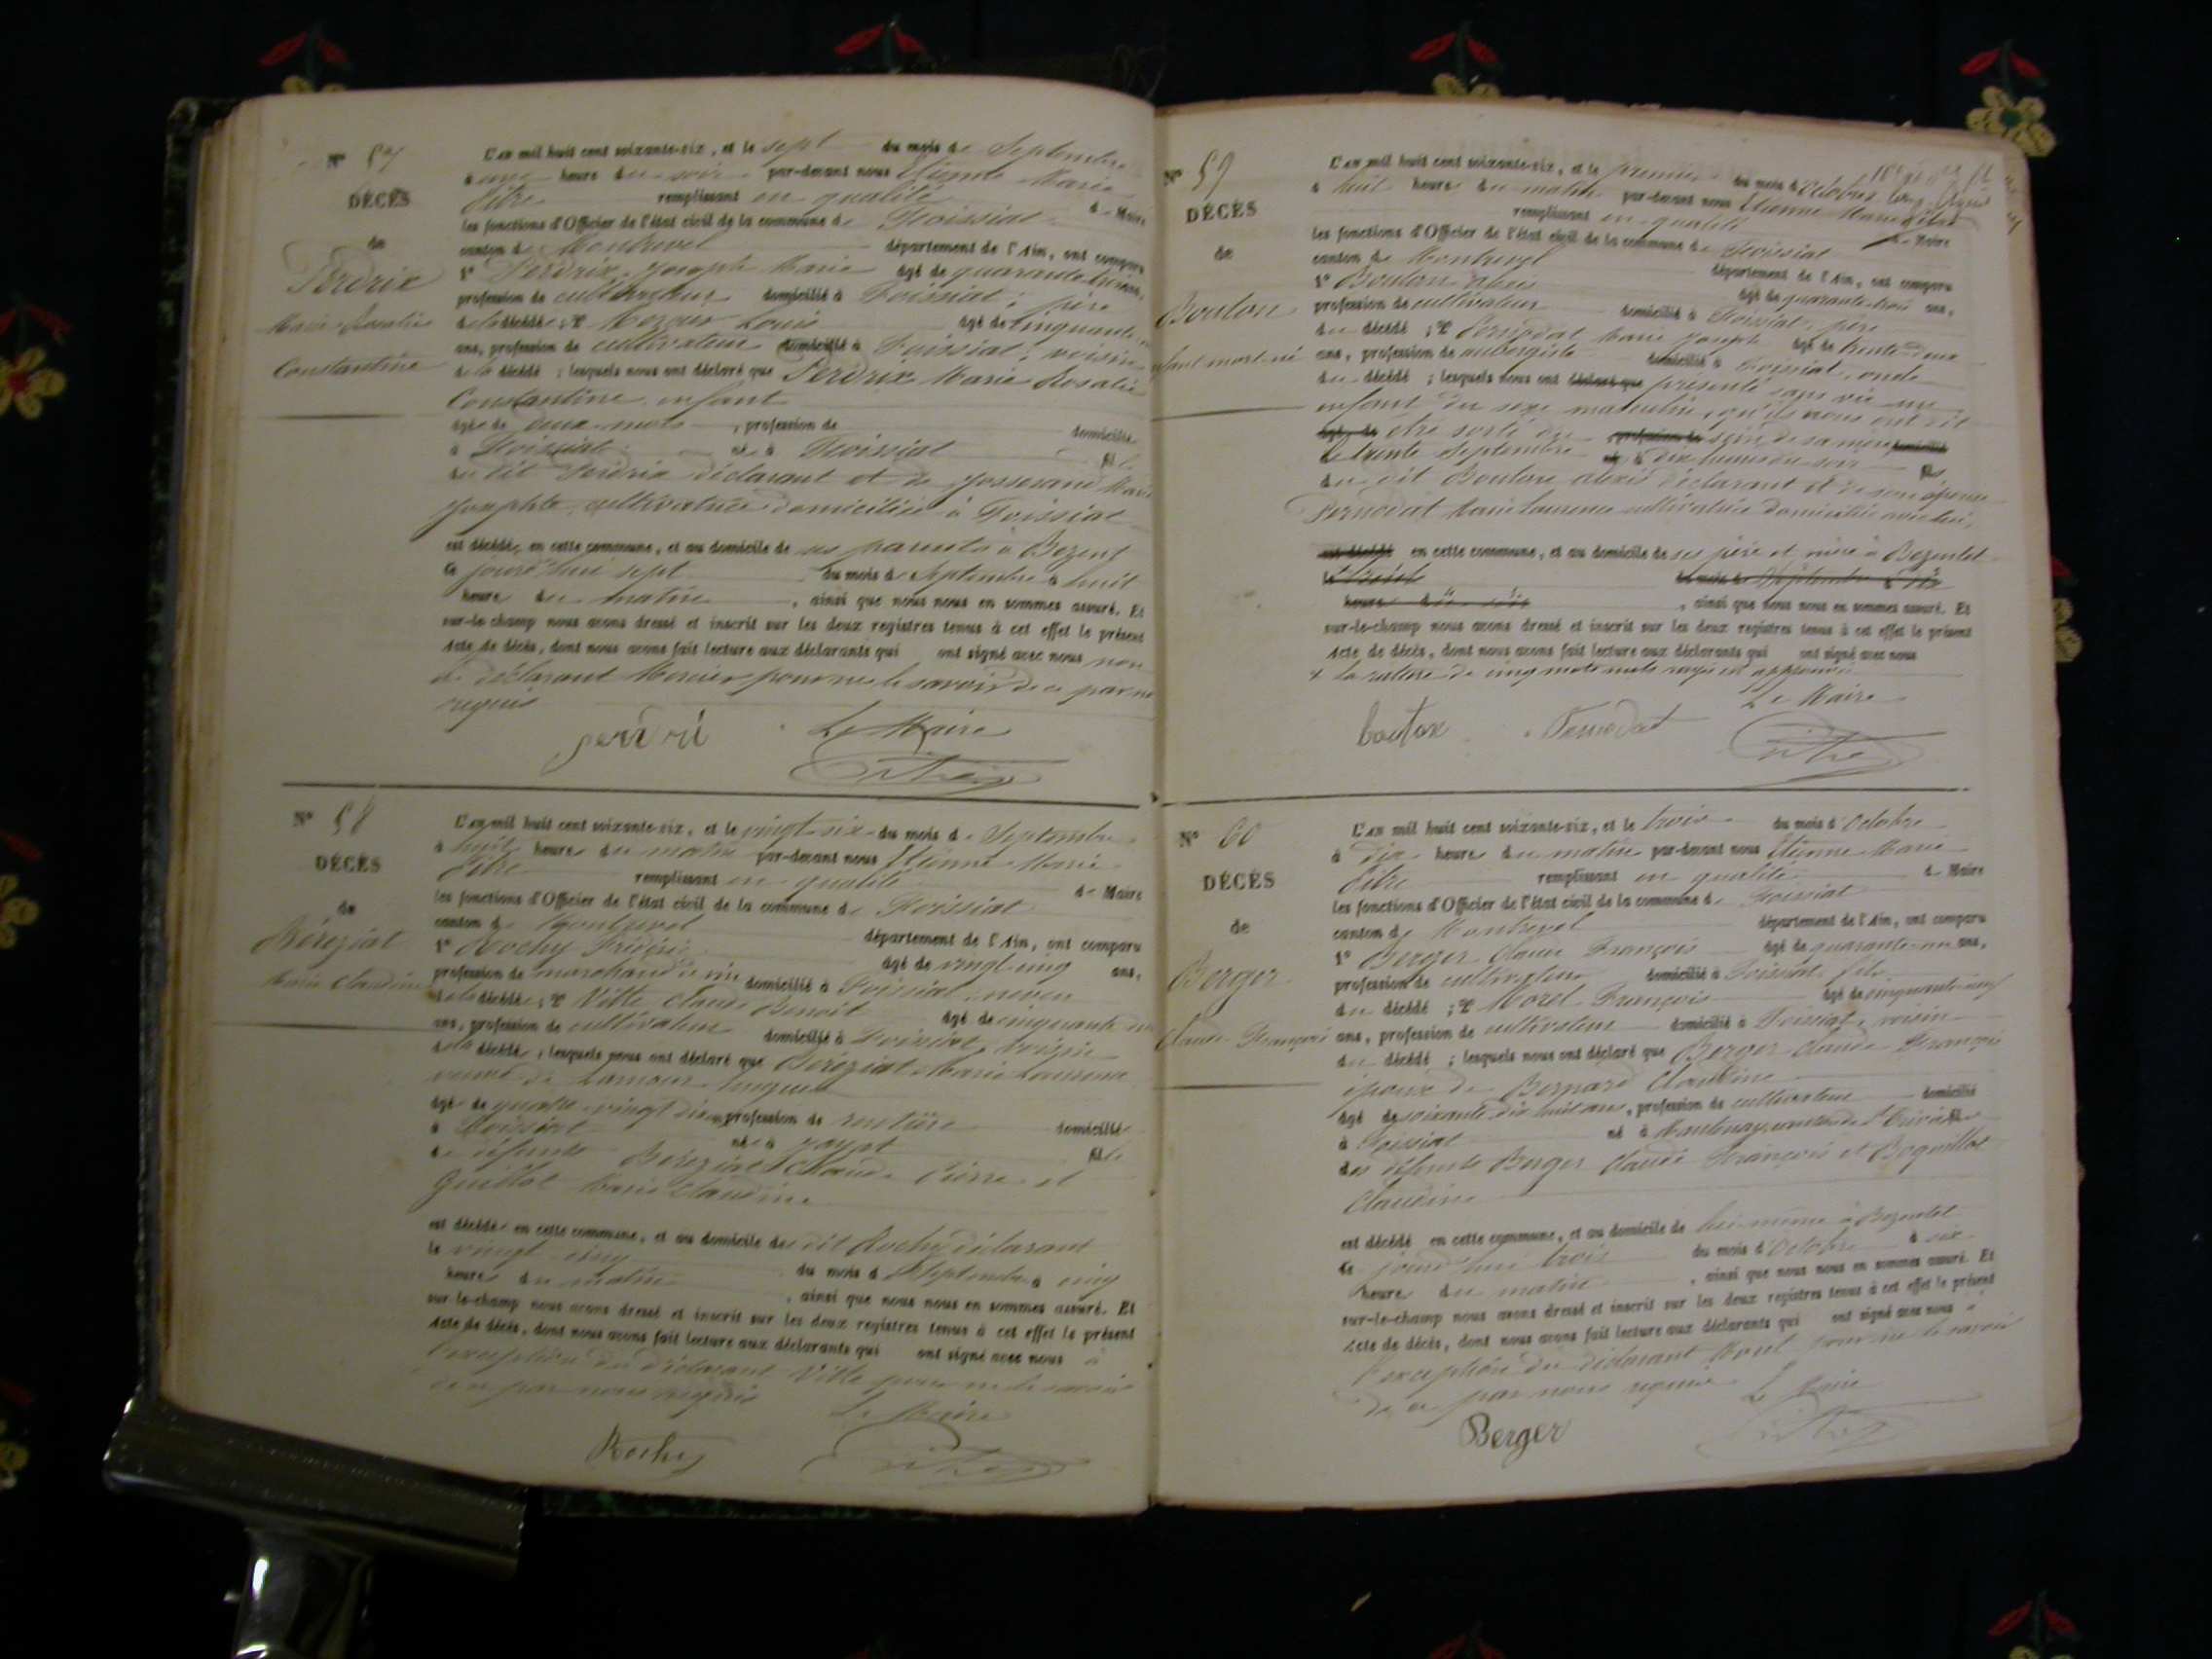 N° 57
DÉCÈS
de
Perdrix
Marie Rosalie
Constantine
L'an mil huit cent soixante-six, et le sept du mois de Septembre
à une heure du soir par-devant nous Etienne Marie
Pitre remplissant en qualité de Maire
les fonctions d'Officier de l'état civil de la commune de Foissiat
canton de Montrevel département de l'Ain, ont comparu
1° Perdrix Joseph Marie âgé de quarante trois ans,
profession de cultivateur domicilié à Foissiat, père
de la décédée; 2° Mercier Louis âgé de cinquante
ans, profession de cultivateur domicilié à Foissiat, voisin
de la décédée; lesquels nous ont déclaré que Perdrix Marie Rosalie
Constantine enfant
âgée de deux mois, profession de domiciliée
à Foissiat née à Foissiat fille
du dit Perdrix déclarant et de Josserand Marie
Josephte cultivatrice domiciliée à Foissiat
est décédée en cette commune, et au domicile de ses parents à Bezent
ce jourd'hui sept du mois de Septembre à huit
heures du matin, ainsi que nous nous en sommes assuré. Et
sur-le-champ nous avons dressé et inscrit sur les deux registres tenus à cet effet le présent
Acte de décès, dont nous avons fait lecture aux déclarants qui ont signé avec nous non
le déclarant Mercier pour ne le savoir de ce par nous
requis
perdri Le Maire
Pitre
N° 58
DÉCÈS
de
Béréziat
Marie Claudine
L'an mil huit cent soixante-six, et le vingt-six du mois de Septembre
à huit heures du matin par-devant nous Etienne Marie
Pitre remplissant en qualité de Maire
les fonctions d'Officier de l'état civil de la commune de Foissiat
canton de Montrevel département de l'Ain, ont comparu
1° Rochy Frédéric âgé de vingt-cinq ans,
profession de marchand de vin domicilié à Foissiat, neveu
de la décédée; 2° Ville Claude Benoît âgé de cinquante
ans, profession de cultivateur domicilié à Foissiat, voisin
de la décédée; lesquels nous ont déclaré que Béréziat Marie Laurence
veuve de Lamour
âgée de quatre-vingt dix ans profession de rentière domiciliée
à Foissiat née à Jayat fille
de défunts Béréziat Claude Pierre et
Guillot Marie Claudine
est décédée en cette commune, et au domicile du dit Rochy déclarant
le vingt-cinq du mois de Septembre à cinq
heures du matin, ainsi que nous nous en sommes assuré. Et
sur-le-champ nous avons dressé et inscrit sur les deux registres tenus à cet effet le présent
Acte de décès, dont nous avons fait lecture aux déclarants qui ont signé avec nous à
l'exception du déclarant Ville pour ne le savoir
de ce par nous requis
Le Maire
Rochy Pitre
N° 59
DÉCÈS
de
Bouton
enfant mort-né
L'an mil huit cent soixante-six, et le premier du mois d'Octobre
à huit heures du matin par-devant nous Etienne Marie Pitre
remplissant en qualité de Maire
les fonctions d'Officier de l'état civil de la commune de Foissiat
canton de Montrevel département de l'Ain, ont comparu
1° Bouton Alexis âgé de quarante-trois ans,
profession de cultivateur domicilié à Foissiat, père
du décédé; 2° Pernodat Marie Joseph âgé de trente-deux
ans, profession de aubergiste domicilié à Foissiat, oncle
du décédé; lesquels nous ont déclaré que présenté sans vie un
enfant du sexe masculin, qu'ils nous ont dit
âgé de être sorti du profession de sein de sa mère domicilié
le trente Septembre né à dix heures du soir fils
du dit Bouton Alexis déclarant et de son épouse
Pernodat Marie Laurence cultivatrice domiciliée avec lui
est décédé en cette commune, et au domicile de ses père et mère à Bezentet
du mois de Septembre à dix
heures du soir, ainsi que nous nous en sommes assuré. Et
sur-le-champ nous avons dressé et inscrit sur les deux registres tenus à cet effet le présent
Acte de décès, dont nous avons fait lecture aux déclarants qui ont signé avec nous
La rature de cinq mots nuls rayés est approuvée
Le Maire
bouton Pernodat Pitre
N° 60
DÉCÈS
de
Berger
Claude François
L'an mil huit cent soixante-six, et le trois du mois d'Octobre
à dix heures du matin par-devant nous Etienne Marie
Pitre remplissant en qualité de Maire
les fonctions d'Officier de l'état civil de la commune de Foissiat
canton de Montrevel département de l'Ain, ont comparu
1° Berger Claude François âgé de quarante-un ans,
profession de cultivateur domicilié à Foissiat, fils
du décédé; 2° Morel François âgé de cinquante-neuf
ans, profession de cultivateur domicilié à Foissiat, voisin
du décédé; lesquels nous ont déclaré que Berger Claude François
époux de Bernard Claudine
âgé de soixante dix huit ans, profession de cultivateur domicilié
à Foissiat né à fils
des défunts Berger Claude François et Boquillot
Claudine
est décédé en cette commune, et au domicile de lui-même à Bezentet
ce jourd'hui trois du mois d'Octobre à six
heures du matin, ainsi que nous nous en sommes assuré. Et
sur-le-champ nous avons dressé et inscrit sur les deux registres tenus à cet effet le présent
Acte de décès, dont nous avons fait lecture aux déclarants qui ont signé avec nous à
l'exception du déclarant Morel pour ne le savoir
de ce par nous requis Le Maire
Berger Pitre